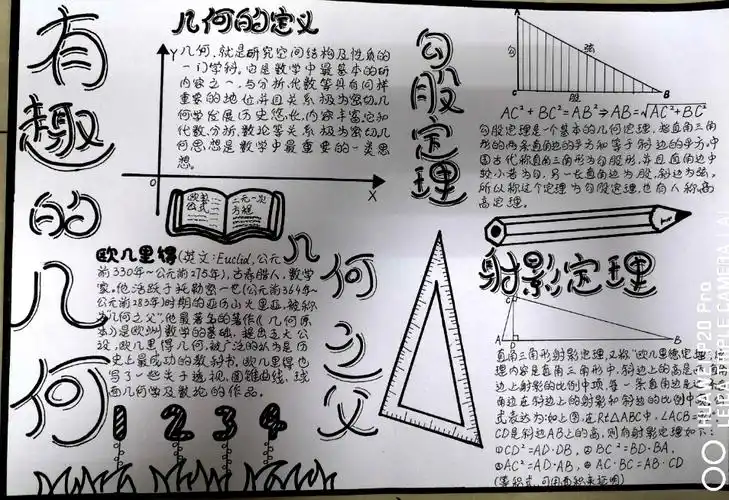 有趣的几何
几何的定义
Y
几何，就是研究空间结构及性质的
一门学科。它是数学中最基本的研
究内容之一，与分析、代数等具有同样
重要的地位，并且关系极为密切。几
何学发展历史悠长，内容丰富。它和
代数、分析、数论等关系极为密切。几
何思想是数学中最重要的一类思
想。
O
X
欧拉
公式
二元一次
方程
勾股定理
A
勾
弦
C
股
B
AC²+BC²=AB²⇒AB=√AC²+BC²
勾股定理是一个基本的几何定理，指直角三角
形的两条直角边的平方和等于斜边的平方。中
国古代称直角三角形为勾股形，并且直角边中
较小者为勾，另一长直角边为股，斜边为弦，
所以称这个定理为勾股定理，也有人称商
高定理。
几何之父
欧几里得(英文：Euclid，公元
前330年～公元前275年)，古希腊人，数学
家。他活跃于托勒密一世(公元前364年～
公元前283年)时期的亚历山大里亚，被称
为"几何之父"，他最著名的著作《几何原
本》是欧洲数学的基础，提出五大公
设，欧几里得几何，被广泛的认为是历
史上最成功的教科书。欧几里得也
写了一些关于透视、圆锥曲线、球
面几何学及数论的作品。
1 2 3 4
射影定理
C
A
D
B
直角三角形射影定理，又称"欧几里德定理"，定
理内容是直角三角形中，斜边上的高是两直角
边上射影的比例中项。每一条直角边是这
角边在斜边上的射影和斜边的比例中
式表达为：如上图，在Rt△ABC中，∠ACB=
CD是斜边AB上的高，则有射影定理如下：
①CD²=AD·DB，②BC²=BD·BA，
③AC²=AD·AB，④AC·BC=AB·CD
(等积式，可用面积来证明)
HUAWEI P20 Pro
LEICA TRIPLE CAMERA | AI